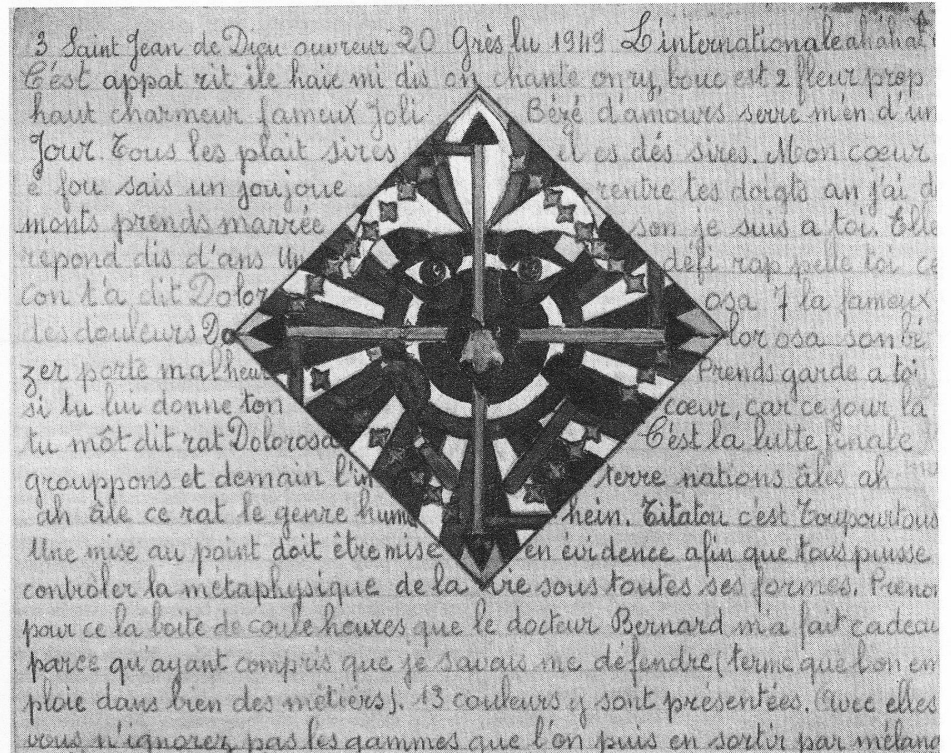 3 Saint Jean de Dieu ouvreur 20 Grès lu 1949 L'internationale ahahah
C'est appat rit ile haie mi dis on chante on ry, bouc est 2 fleur prop
haut charmeur fameux Joli Bézé d'amours serre m'en d'un
Jour. Tous les plait sires el es dés sires. Mon cœur
e fou sais un joujoue rentre tes doigts an j'ai d
monts prends marrée son je suis a toi. Elle
répond dis d'ans Un défi rap pelle toi ce
con t'a dit Dolor osa 7 la fameux
des douleurs Do lor osa son bé
zer porte malheur Prends garde a toi
si tu lui donne ton cœur, car ce jour la
tu môt dit rat Dolorosa C'est la lutte finale
grouppons et demain l'in terre nations âles ah
ah âle ce rat le genre hum hein. Titatou c'est Toupourtous
Une mise au point doit être mise en évidence afin que tous puisse
contrôler la métaphysique de la vre sous toutes ses formes. Prenon
pour ce la boite de coule heures que le docteur Bernard m'a fait cadeau
parce qu'ayant compris que je savais me défendre (terme que l'on em
ploie dans bien des métiers). 13 couleurs y sont présentées. Avec elles
vous n'ignorez pas les gammes que l'on puis en sortir par mélang